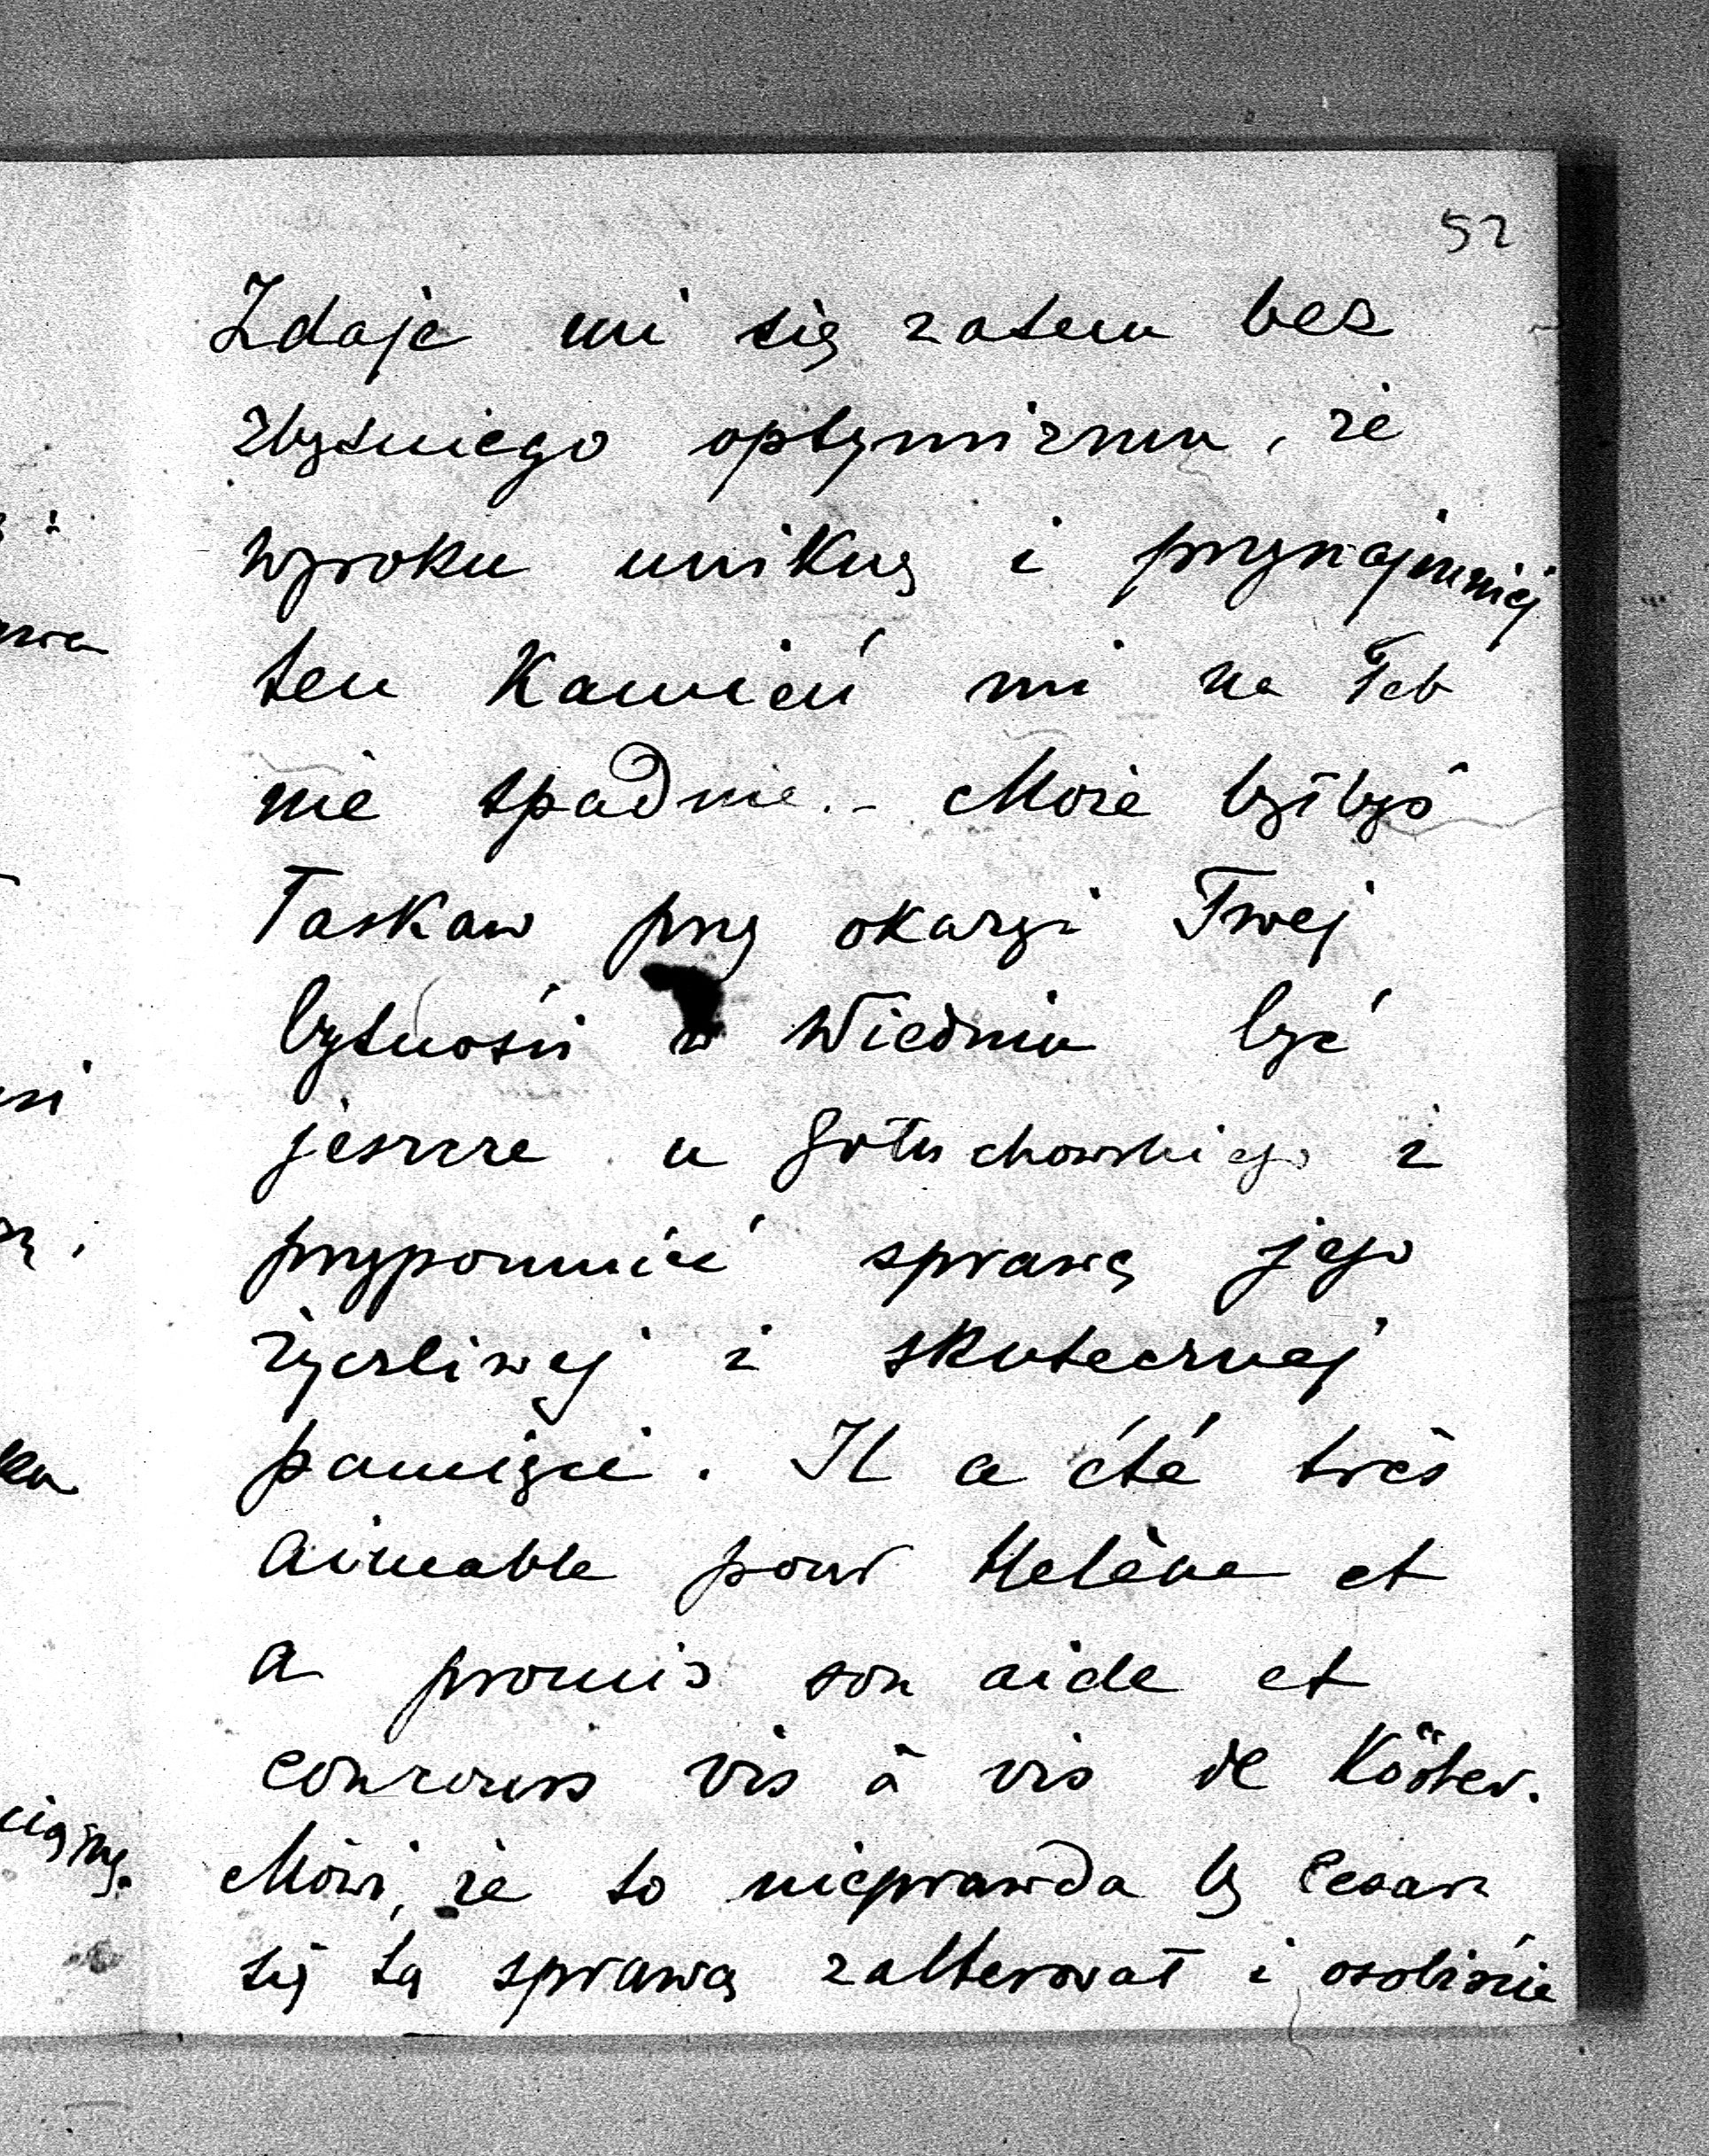 52
Zdaje mi się zatem bez
zbytniego optymizmu, że
wyroku uniknę i przynajmniej
ten kamień mi na łeb
nie spadnie. – Może byłbyś
łaskaw przy okazyi Twej
bytności w Wiedniu być
jeszcze u Gołuchowskiego i
przypomnieć sprawę jego
życzliwej i skutecznej
pamięci. Il a été très
aimable pour Helène et
a promis son aide et
concours vis à vis de Körber.
Mówi, że to nieprawda by Cesarz
się tą sprawą zalterował i osobiście